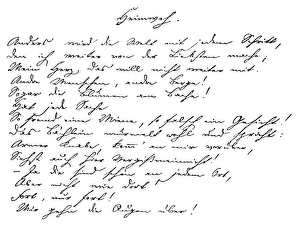 Heimweh.
Anders wird die Welt mit jedem Schritt,
den ich weiter von der Liebsten mache,
Mein Herz das will nicht weiter mit.
Andre Menschen, andre Berge!
Sogar die Blumen am Bache!
Hat jede Sache
So fremd eine Miene, so falsch ein Gesicht!
Das Bächlein murmelt wohl und spricht:
Armer Knabe, komm' an mir vorüber,
Siehst auch hier Vergißmeinnicht!
– Ja die sind schön an jedem Ort,
Aber nicht wie dort
Fort, nur fort!
Mir gehn die Augen über!